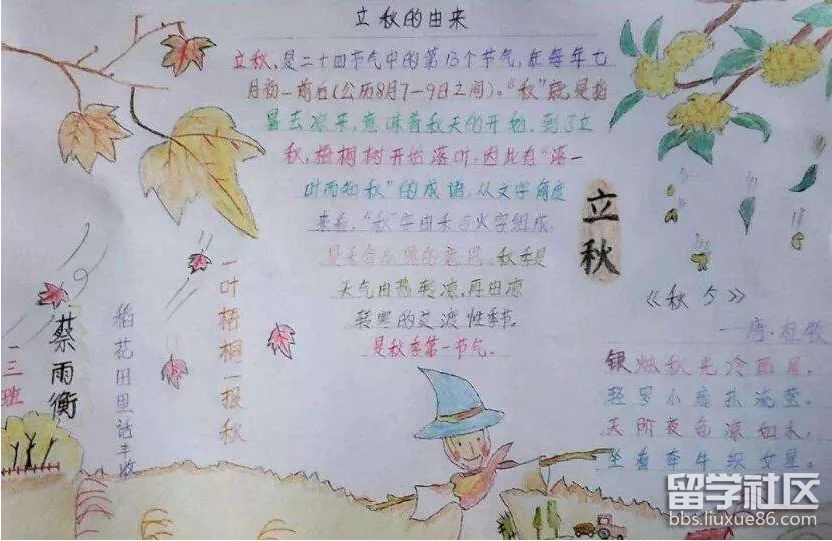 立秋的由来
立秋，是二十四节气中的第13个节气，在每年七
月初一前后(公历8月7-9日之间)。"秋"就是指
暑去凉来，意味着秋天的开始。到了立
秋，梧桐树开始落叶，因此有"落一
叶而知秋"的成语。从文字角度
来看，"秋"字由禾与火字组成，
是禾谷成熟的意思。秋季是
天气由热转凉，再由凉
转寒的过渡性季节。
是秋季第一节气。
立秋
一叶梧桐一报秋
稻花田里话丰收
蔡雨衡
一三班
《秋夕》
—唐·杜牧
银烛秋光冷画屏，
轻罗小扇扑流萤。
天阶夜色凉如水，
坐看牵牛织女星。
留学社区
bbs.liuxue86.com